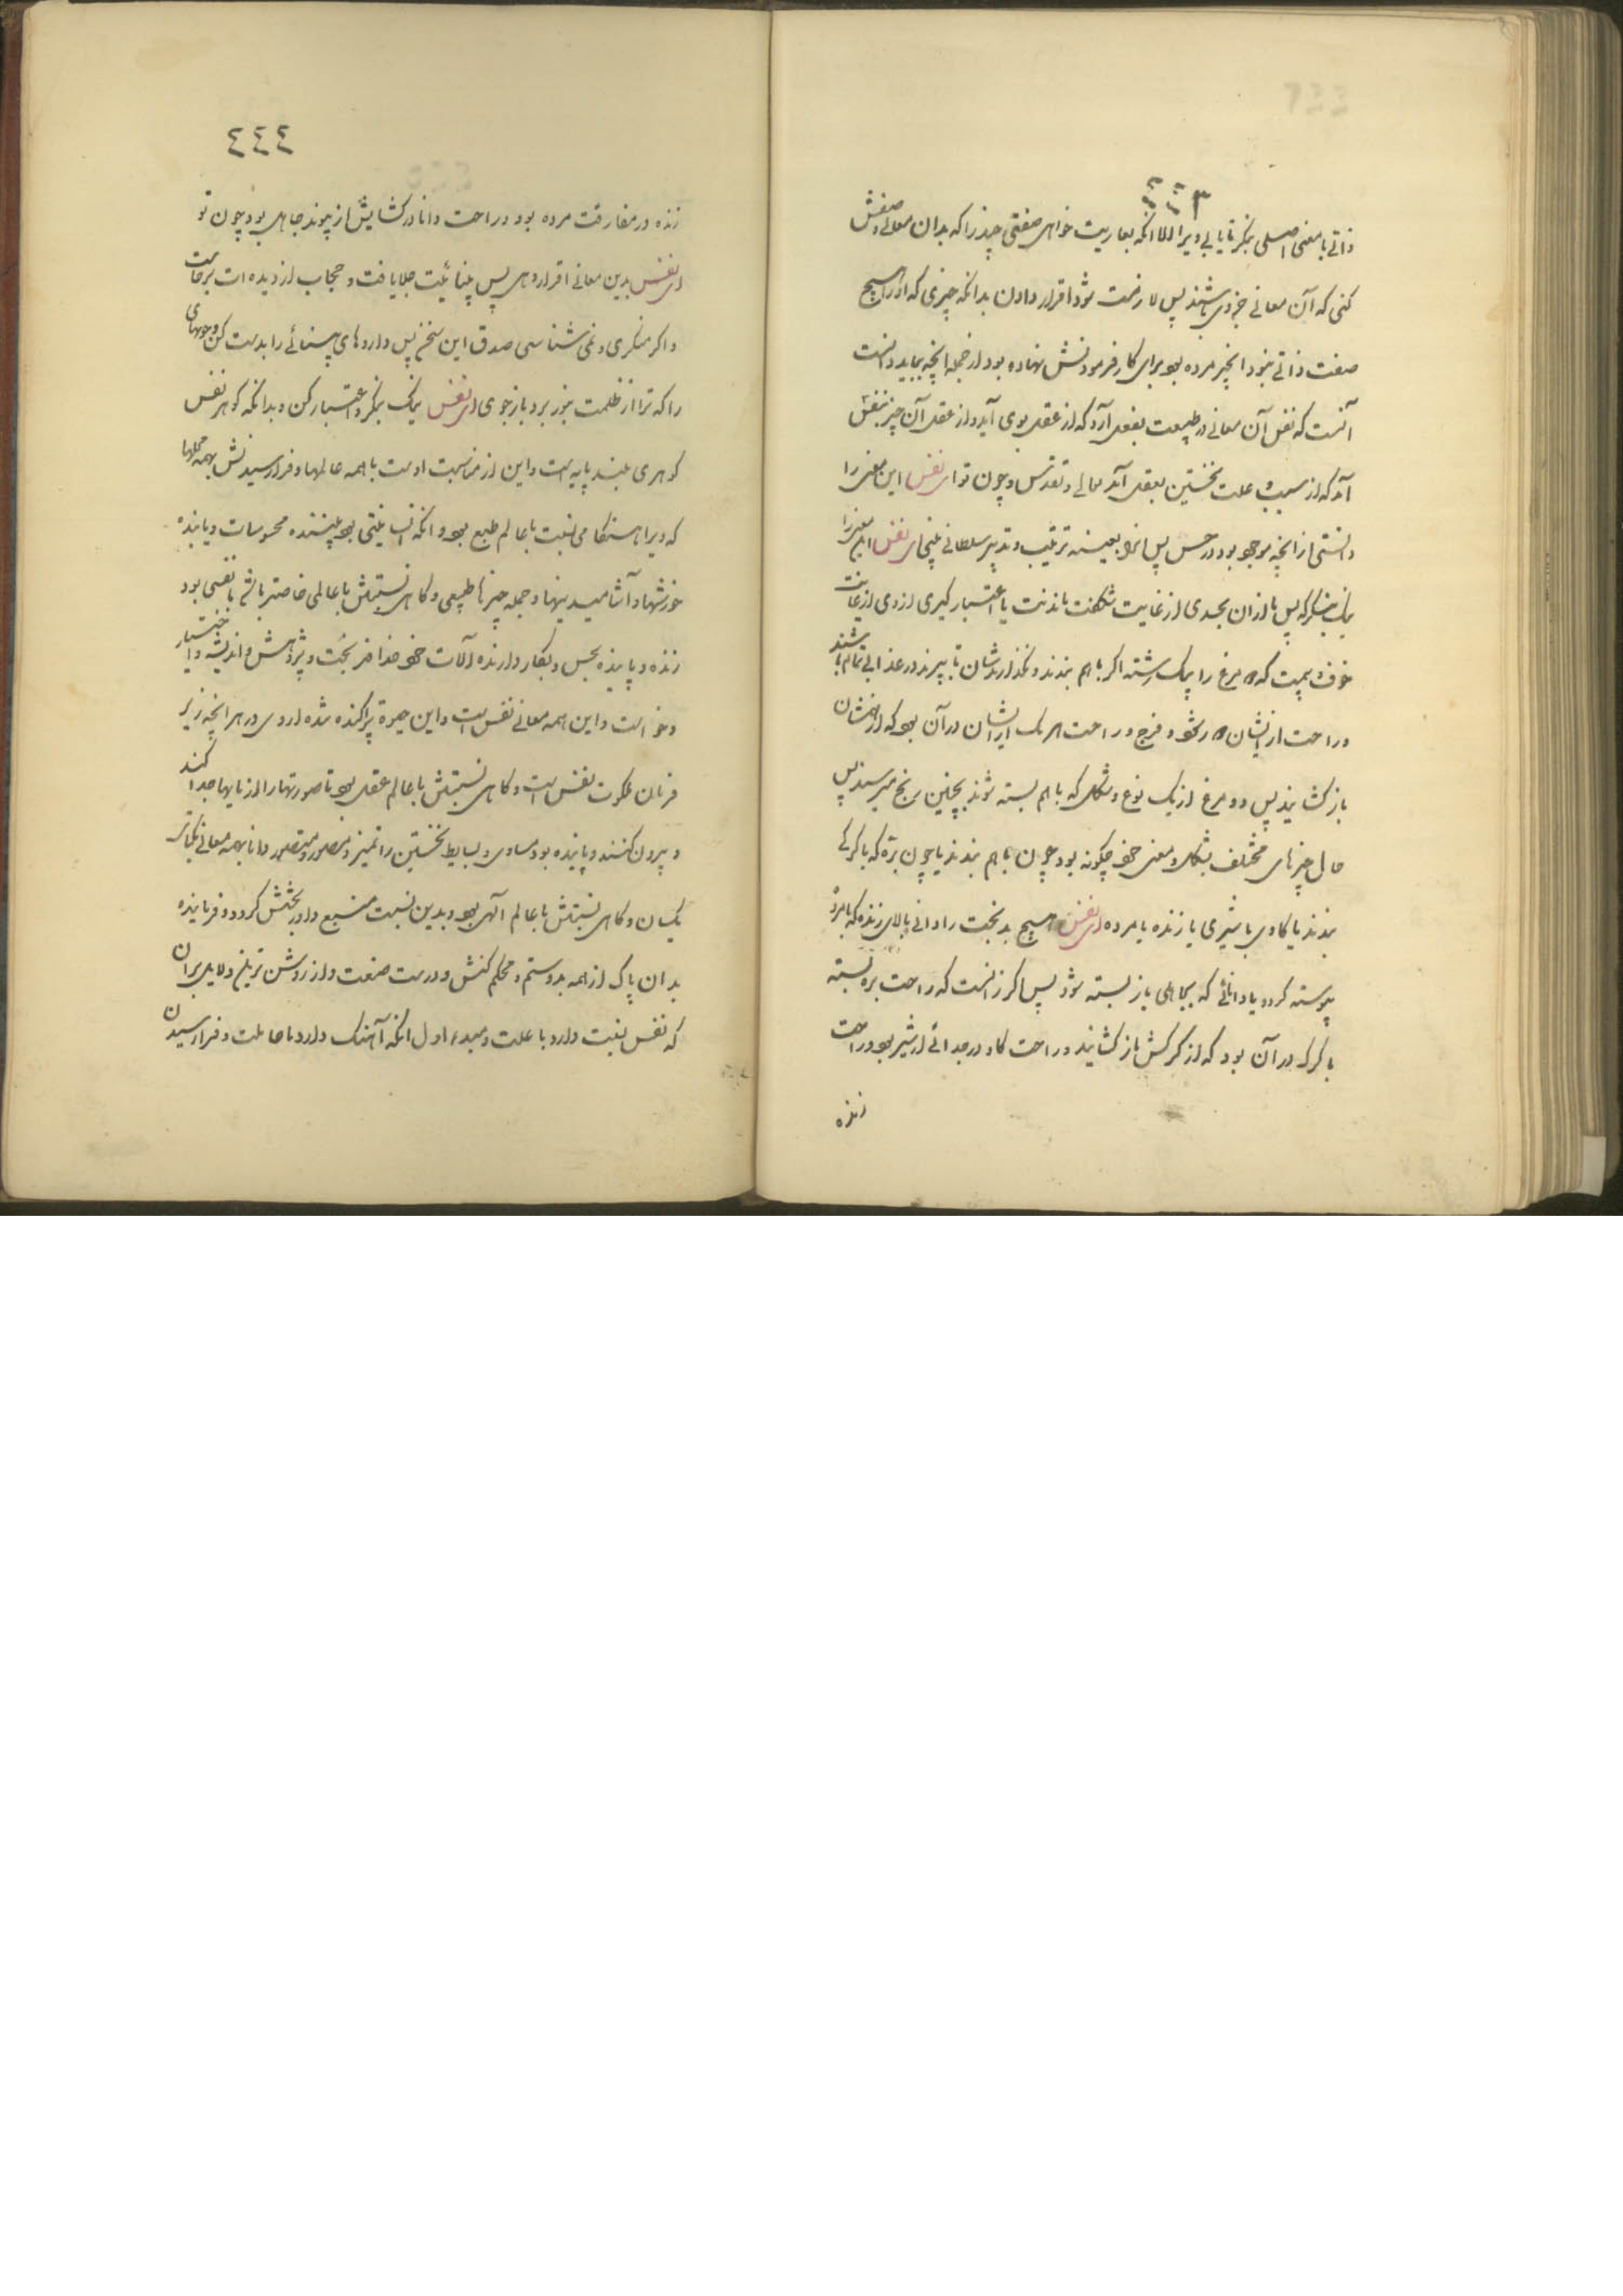 ٤٤٣
ذاتی با معنی اصلی بنگر تا یابی ویرا الا انکه بعاریت خواهی صفتی چند را که بدان معانی وصفش
کنی که آن معانی جز وی باشند پس لازمت شود اقرار دادن بدانکه چیزی که او را هیچ
صفت ذاتی نبود انچیز مرده بود برای کار فرمودنش نهاده بود از جمله انچه بباید دانست
آنست که نفس آن معانی در طبیعت بفعل آرد که از عقل بوی آید و از عقل آن چیز بنفس
آید که از سبب و علت نخستین بعقل آید تعالی و تقدس و چون تو ای نفس این معنی را
دانستی از انچه موجود بود در حس پس انرا بعینه ترتیب و تدبیر سلطانی بینی ای نفس این معنی را
نیک بنگر که پس باز ان بحدی از غایت شگفت ماندنت یا اعتبار گیری از وی از غایت
خوف بیمت که مرغ را بیک رشته اگر باهم بندند و نگذارندشان تا بپرند در عذابی تمام باشند
و راحت از ایشان رشود و فرج و راحت هر یک ازیشان در آن بود که از همشان
باز گشایند پس دو مرغ از یک نوع و شکل که باهم بسته شوند بچنین رنج میرسند پس
حال چیزهای مختلف بشکل و معنی خود چگونه بود چون باهم بندند یا چون بره که با گرگ
بندند یا گاوی با شیری یا زنده با مرده ای نفس هیچ بدبخت را دانی بالای زنده که با مرده
پیوسته گردد یا دانائی که بجاهلی باز بسته شود پس اگر ز انست که راحت بره بسته
با گرگ در آن بود که از گرگش باز گشایند و راحت گاو در جدائی از شیر بود و راحت
زنده
٤٤٤
زنده در مفارقت مرده بود و راحت دانا در گشایش از پیوند جاهل بود چون تو
ای نفس بدین معانی اقرار دهی پس بینائیت جلا یافت و حجاب از دیده ات برخاست
و اگر منکری و نمی شناسی صدق این سخن پس داروهای بینائی را بدست کن و جویهای
را که ترا از ظلمت بنور برد باز جوی ای نفس نیک بنگر و اعتبار کن و بدانکه گوهر نفس
گوهری بلند پایه است و این از مناسبت اوست با همه عالمها و فرا رسیدنش بهمه محلها
که ویرا هنگامی نسبت با عالم طبع بود و انکه انسانیتی بود بیننده محسوسات و یابنده
خورشها و آشامیدنیها و جمله چیزها طبیعی و گاهی نسبتش با عالمی خاصتر باشد تا نفسی بود
زنده و پاینده بحس و بکار دارنده آلات خود خداوند بخت و پژوهش و اندیشه و اختیار
و خواست و این همه معانی نفس است و این حیوة پراکنده شده از وی در هر انچه زیر
فرمان ملکوت نفس است و گاهی نسبتش با عالم عقل بود تا صورتها را از مایها جدا کند
و بیرون کننده و پاینده بود مساوی و بسایط نخستین را تمیز و مصور و متصور دانا بهمه معانی یکباره
یکسان و گاهی نسبتش با عالم الهی بود و بدین نسبت منبع داد و بخشش گردد و فرماینده
بدان پاک از همه بد و ستم و محکم کنش و درست صنعت و از روشن ترین دلایل بران
که نفس نسبت دارد با علت و مبدء اول انکه آهنگ دارد با حاملت و فرا رسیدن